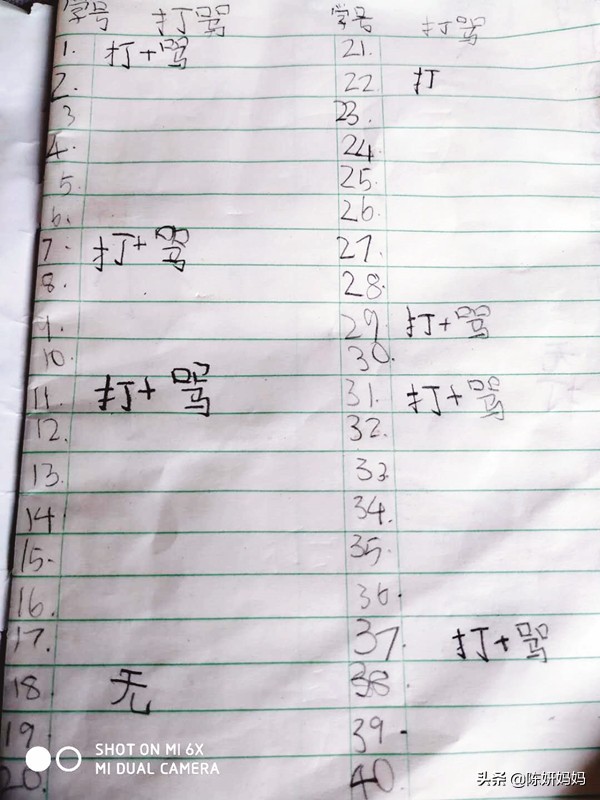 学号 打骂 学号 打骂
1. 打+骂 21.
2. 22 打
3 23.
4. 24.
5. 25.
6. 26.
7. 打+骂 27.
8. 28.
9. 29. 打+骂
10. 30.
11. 打+骂 31. 打+骂
12. 32.
13. 33
14 34.
15. 35.
16. 36.
17. 37. 打+骂
18 无 38.
19. 39.
20. 40
SHOT ON MI 6X
MI DUAL CAMERA
头条 @陈妍妈妈